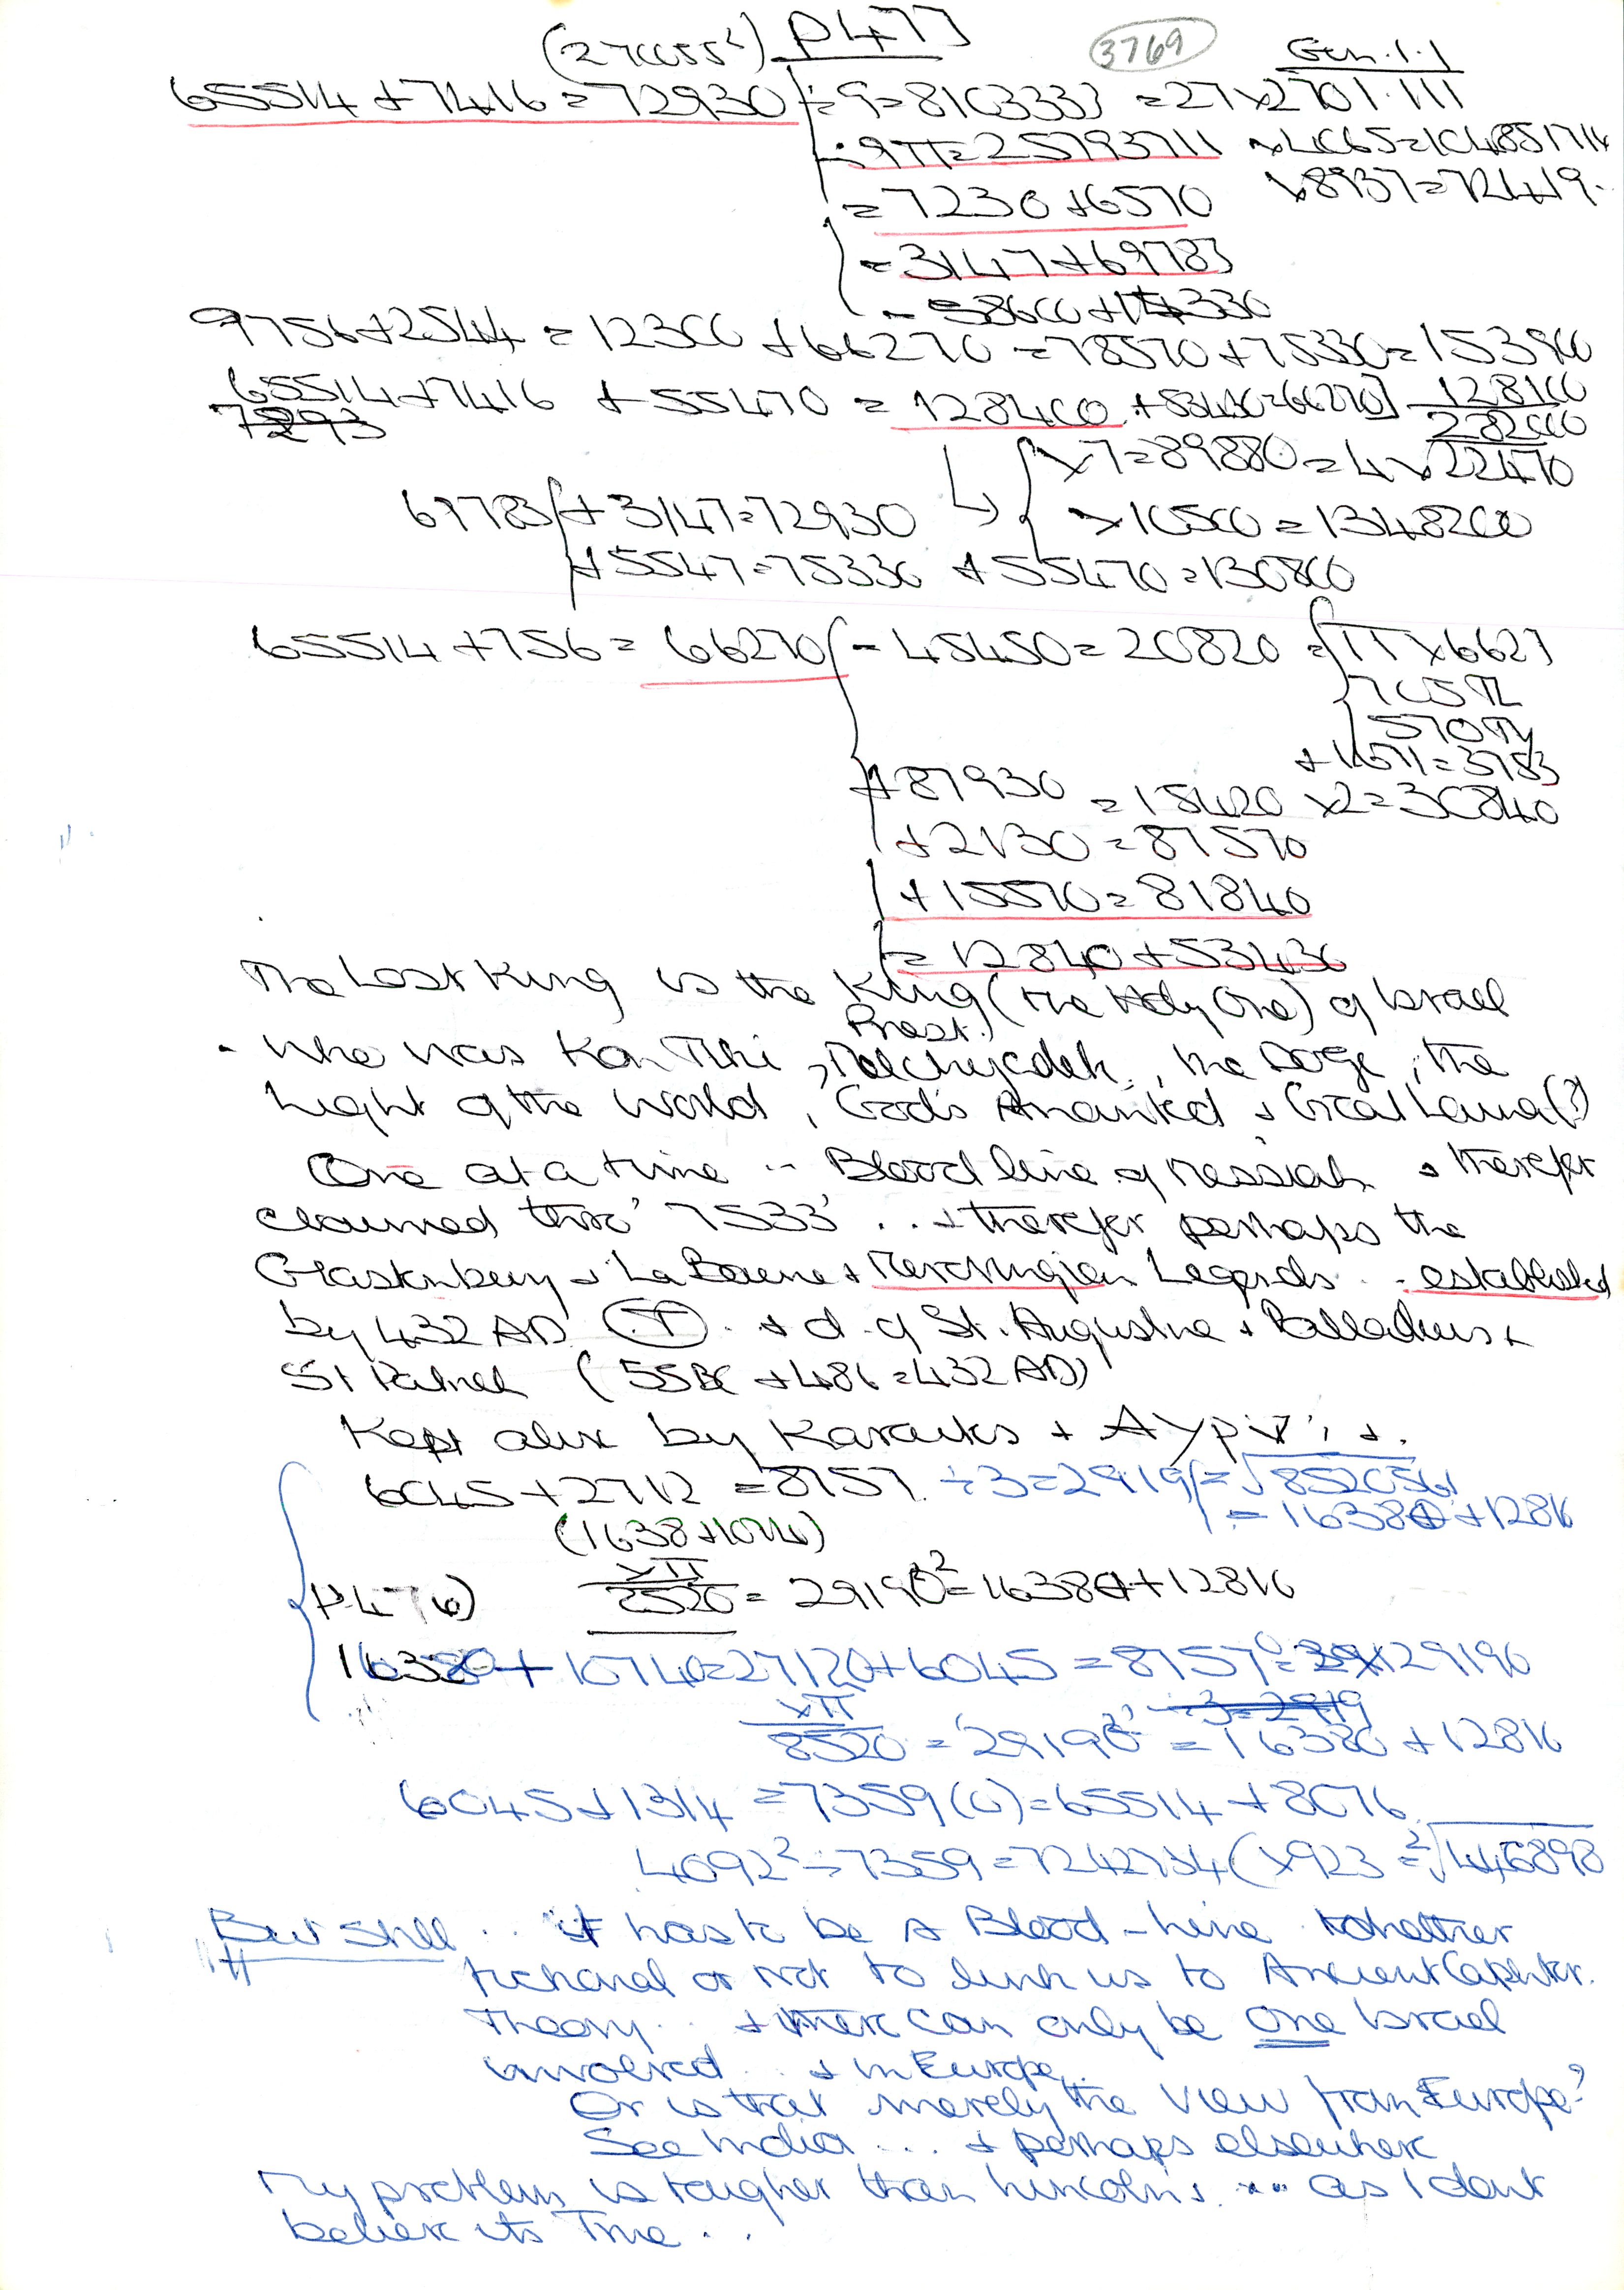 (270055²) P477 3769 Gen.1.1
65514 + 7416 = 72930 ÷ 9 = 8103333 = 27 x 2701.111
÷ 9π = 25793711 x 4065 = 104851714
x 8937 = 72419.
= 7230 + 6570
= 3147 + 69783
= 58600 + 14330
9756 + 2544 = 12300 + 66270 = 78570 + 75330 = 153900
65514 + 7416 + 55470 = 128400 + 53430 = 66270] 128100
7293 282000
x 7 = 89880 = 4 x 22470
69783 + 3147 = 72930 x 10500 = 1348200
+ 5547 = 75330 + 55470 = 130800
65514 + 756 = 66270 - 45450 = 20820 = π x 6627
705π
570π
+ 1671 = 3783
+ 87930 = 15420 x 2 = 30840
+ 2130 = 87570
+ 15570 = 81840
= 12840 + 53430
The Lost King is the King (the Holy One) of Israel
Priest.
. Who was Kon Tiki, Melchizedek, the Doge, the
Light of the World, God's Anointed + Great Lama(?)
One at a time .. Blood line of Messiah + therefor
claimed thro' '7533' .. + therefor perhaps the
Glastonbury + La Baume + Merovingian Legends .. established
by 432 AD. (T) . + d. of St. Augustine + Palladius +
St Patrick (55BC + 486 = 432 AD)
Kept alive by Karaites +
6045 + 2712 = 8757 ÷ 3 = 2919 = √8520561
= 16380 + 12816
(1638 + 1074)
xπ
P476) 8520 = 29190² = 16380 + 12816
16380 + 10740 = 27120 + 6045 = 87570 = 3x 29190
xπ ÷ 3 = 2919
8520 = 29190² = 16380 + 12816
6045 + 1314 = 7359(0) = 65514 + 8076
4092² ÷ 7359 = 7242734 (x 923 = ²√446898
But Still .. it has to be a Blood-line whether
fictional or not to link us to Ancient
Theory .. + there can only be One Israel
involved .. + in Europe..
Or is that merely the view from Europe?
See India ... + perhaps elsewhere
My problem is tougher than Lincoln's ... as I dont
believe its True ..